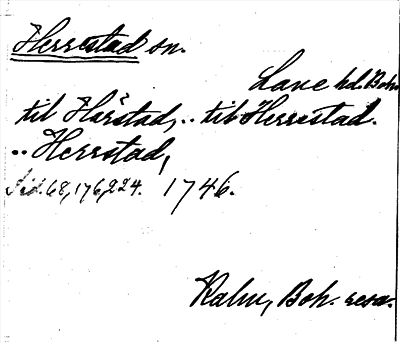 Herrestad sn.
Lane hd. Boh
til Harstad, .. til Herrestad.
.. Herrstad,
Sid. 68, 176, 224. 1746.
Kalm, Boh. resa.